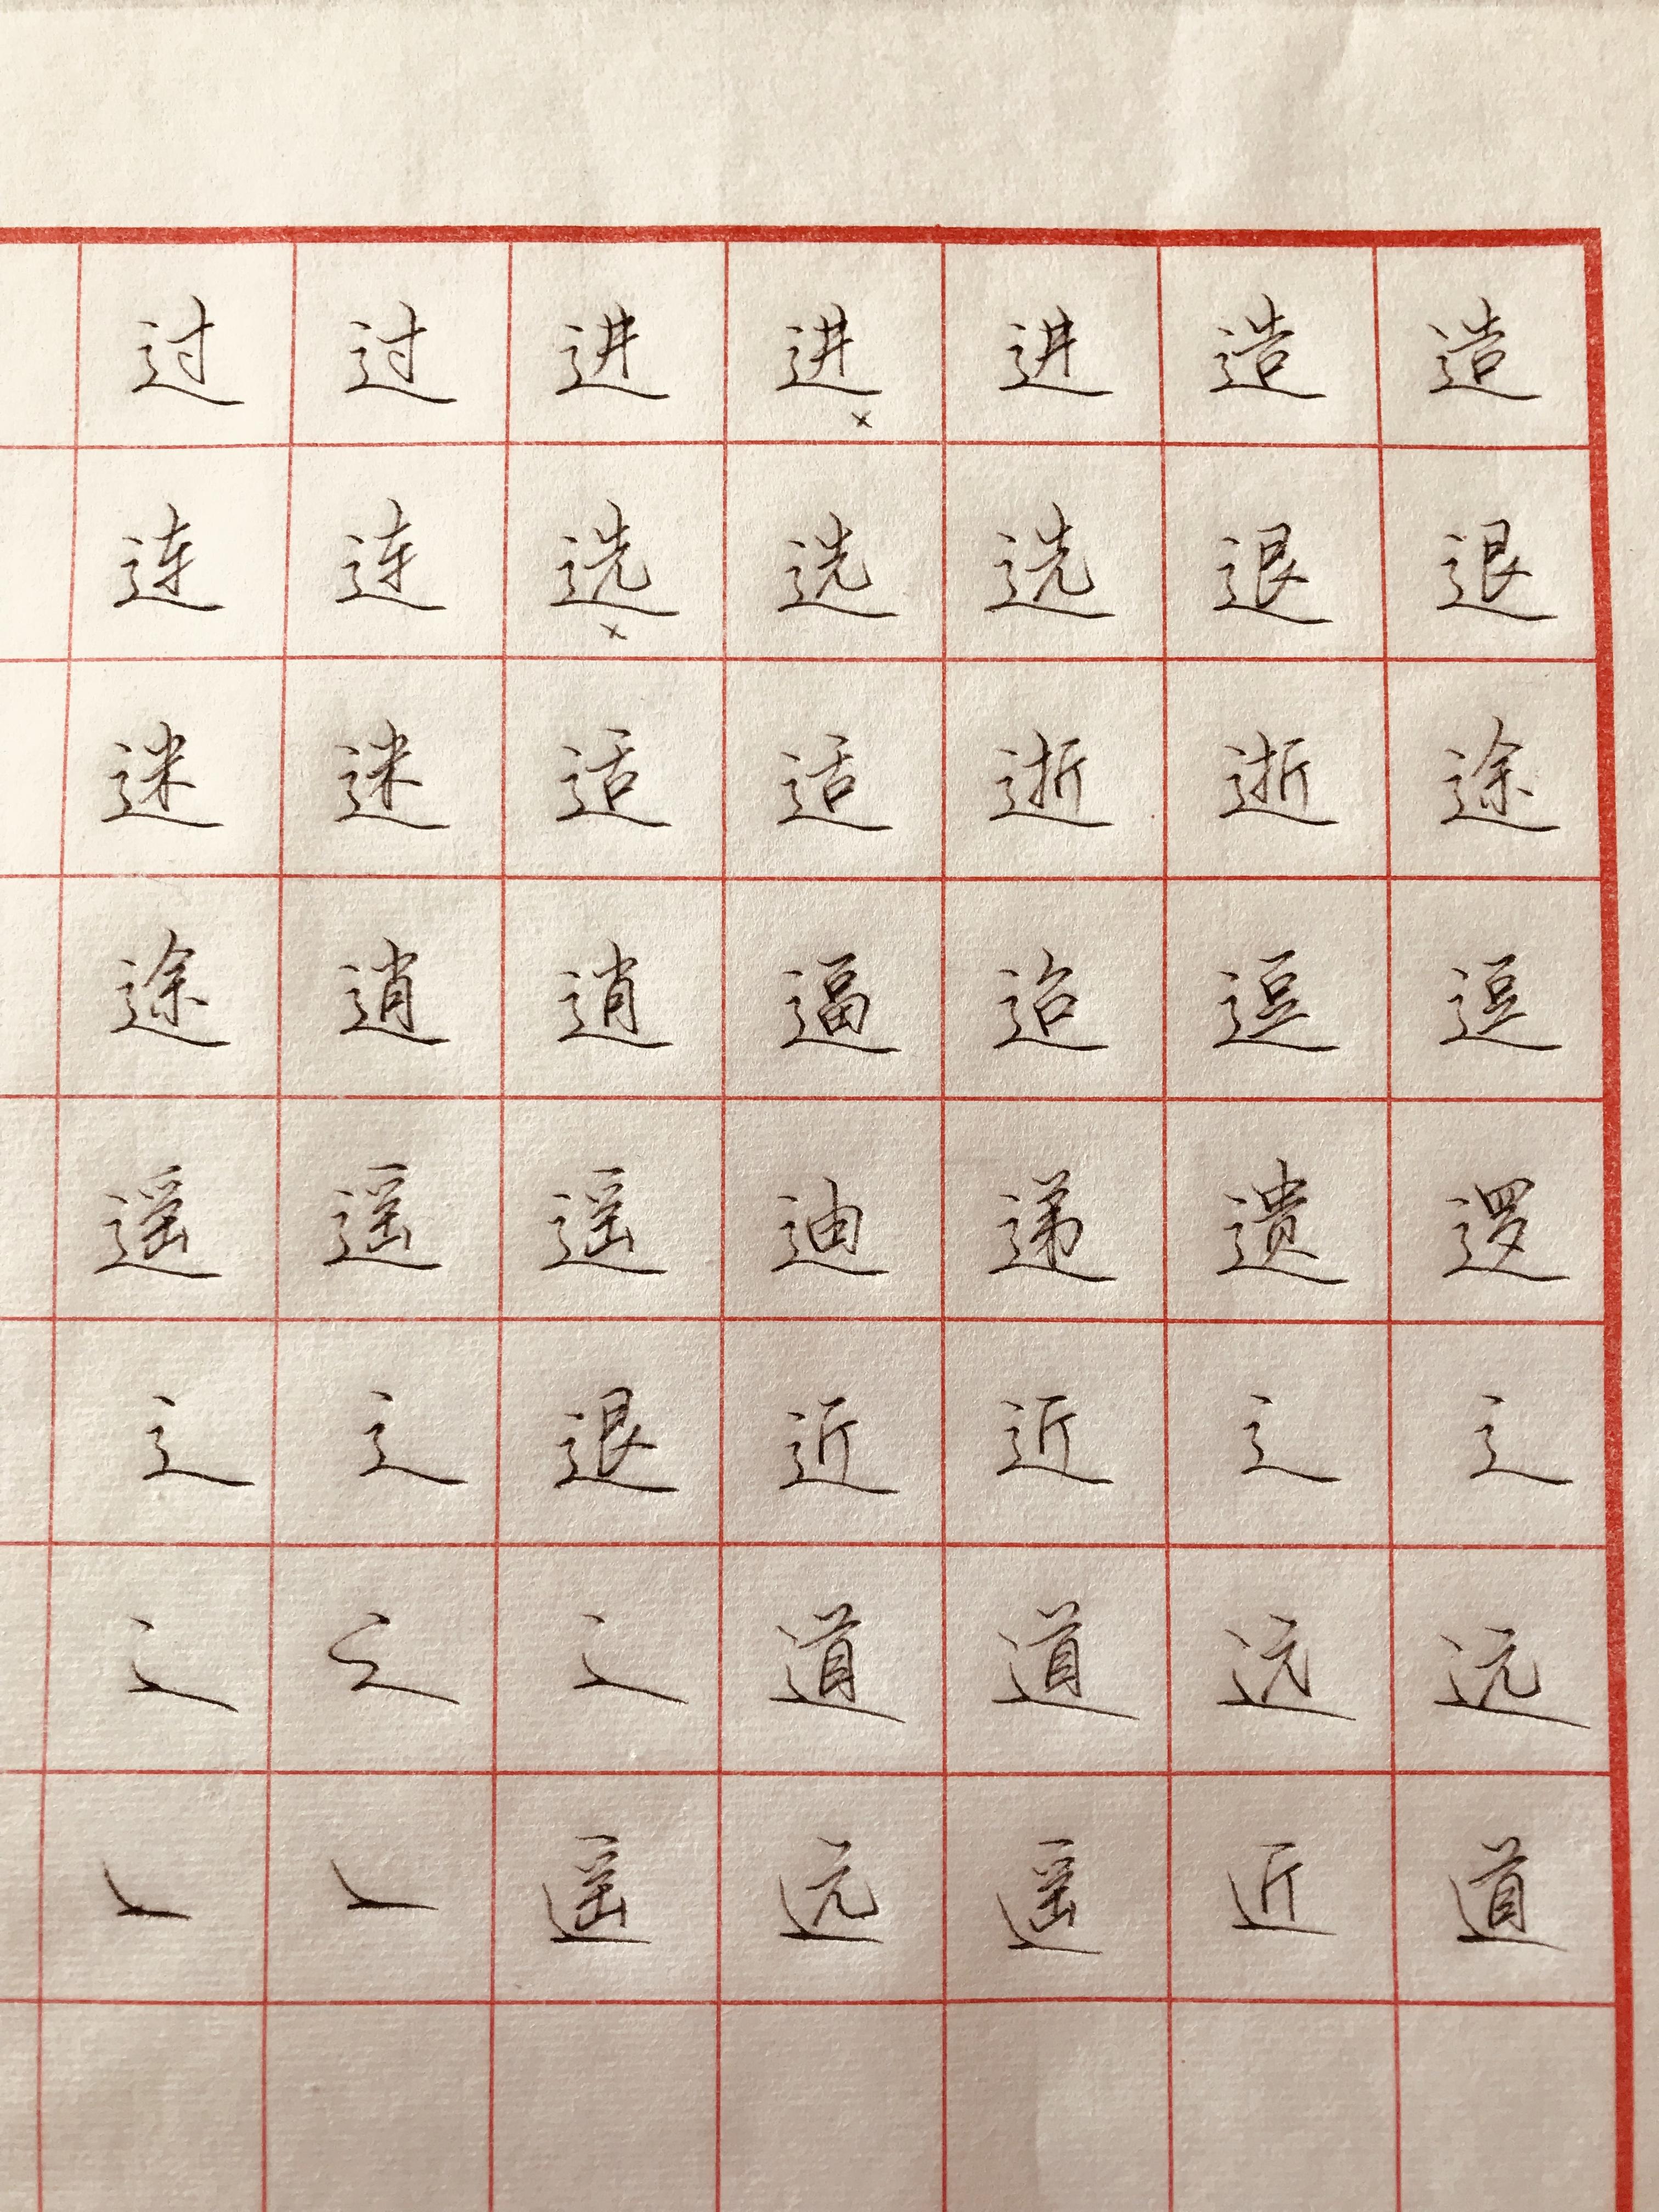 过 过 进 进 进 造 造
连 连 选 选 选 退 退
迷 迷 适 适 逝 逝 途
途 逍 逍 逼 迨 逗 逗
遥 遥 遥 迪 递 遗 逻
辶 辶 退 近 近 辶 辶
辶 辶 辶 道 道 远 远
遥 远 遥 近 道